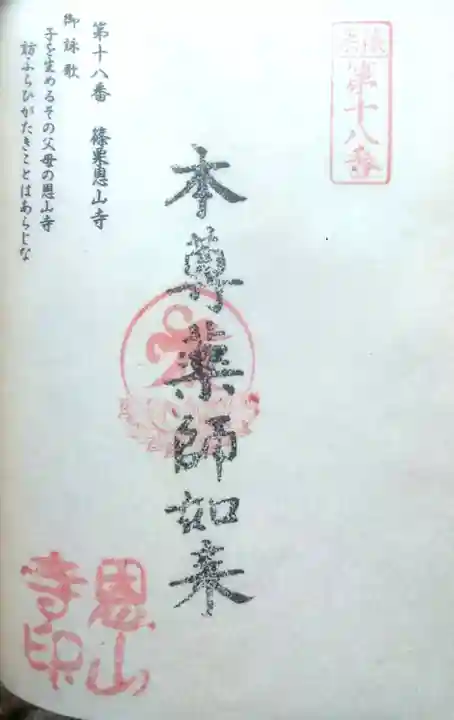 第十八番
本尊薬師如来
第十八番 篠栗恩山寺
御詠歌
子を生めるその父母の恩山寺
訪ふらひがたきことはあらじな
恩山
寺印